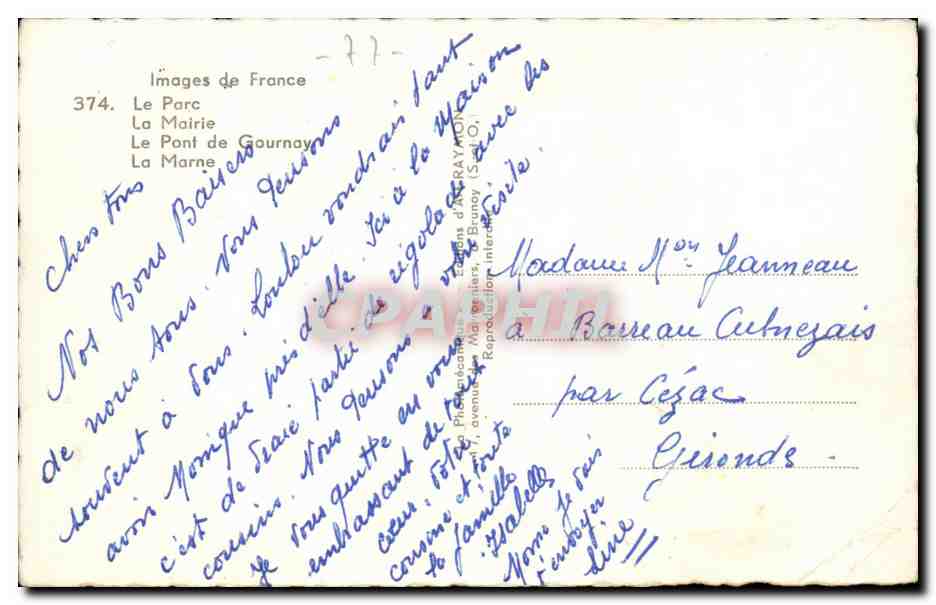 - 77 -
Images de France
374. Le Parc
La Mairie
Le Pont de Gournay
La Marne
Chers tous
Nos Bons Baisers
de nous tous. Nous pensons
souvent à vous. Loulou voudrait tant
avoir Monique près d'elle. Ici à la Maison
c'est de vraie partie de rigolade avec les
cousins. Nous pensons a votre visite.
Je vous quitte en vous
embrassant de tout
cœur. Votre
cousine et toute
la famille
Isabelle
Mome je vais
t'envoyer
Line
La Photomécanique Editions d'Art RAYMON
7, avenue des Marronniers, Brunoy (S.-et-O.)
Reproduction interdite
CPAPHIL
Madame Mon Jeanneau
a Barreau Cubnezais
par Cézac
Gironde